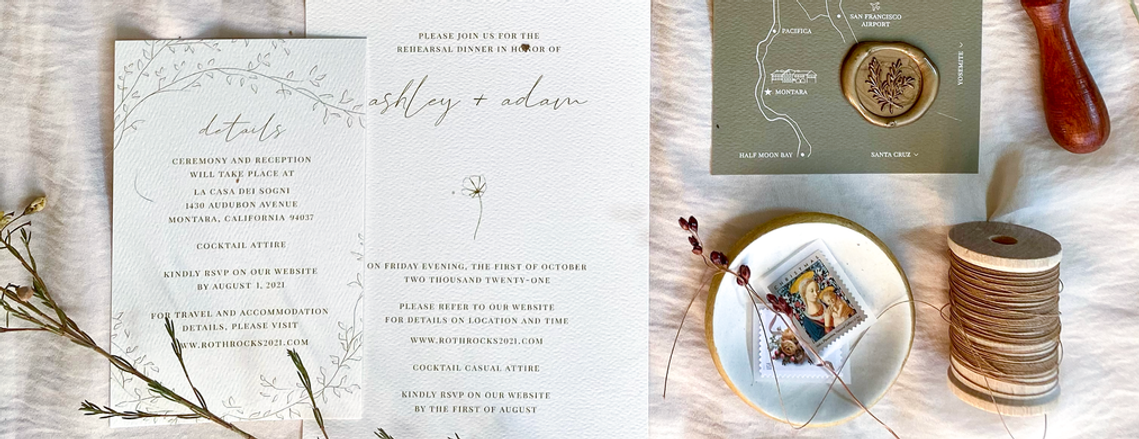 details
CEREMONY AND RECEPTION
WILL TAKE PLACE AT
LA CASA DEI SOGNI
1430 AUDUBON AVENUE
MONTARA, CALIFORNIA 94037
COCKTAIL ATTIRE
KINDLY RSVP ON OUR WEBSITE
BY AUGUST 1, 2021
FOR TRAVEL AND ACCOMMODATION
DETAILS, PLEASE VISIT
WWW.ROTHROCKS2021.COM
PLEASE JOIN US FOR THE
REHEARSAL DINNER IN HONOR OF
ashley + adam
ON FRIDAY EVENING, THE FIRST OF OCTOBER
TWO THOUSAND TWENTY-ONE
PLEASE REFER TO OUR WEBSITE
FOR DETAILS ON LOCATION AND TIME
WWW.ROTHROCKS2021.COM
COCKTAIL CASUAL ATTIRE
KINDLY RSVP ON OUR WEBSITE
BY THE FIRST OF AUGUST
SAN FRANCISCO
AIRPORT
PACIFICA
YOSEMITE
MONTARA
HALF MOON BAY
SANTA CRUZ